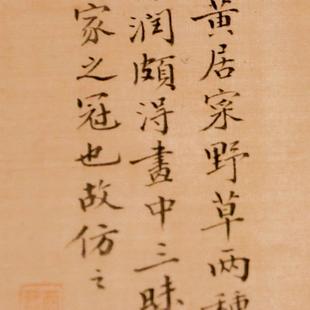 黄居寀野草两種
润頗得畫中三昧
家之冠也故仿之